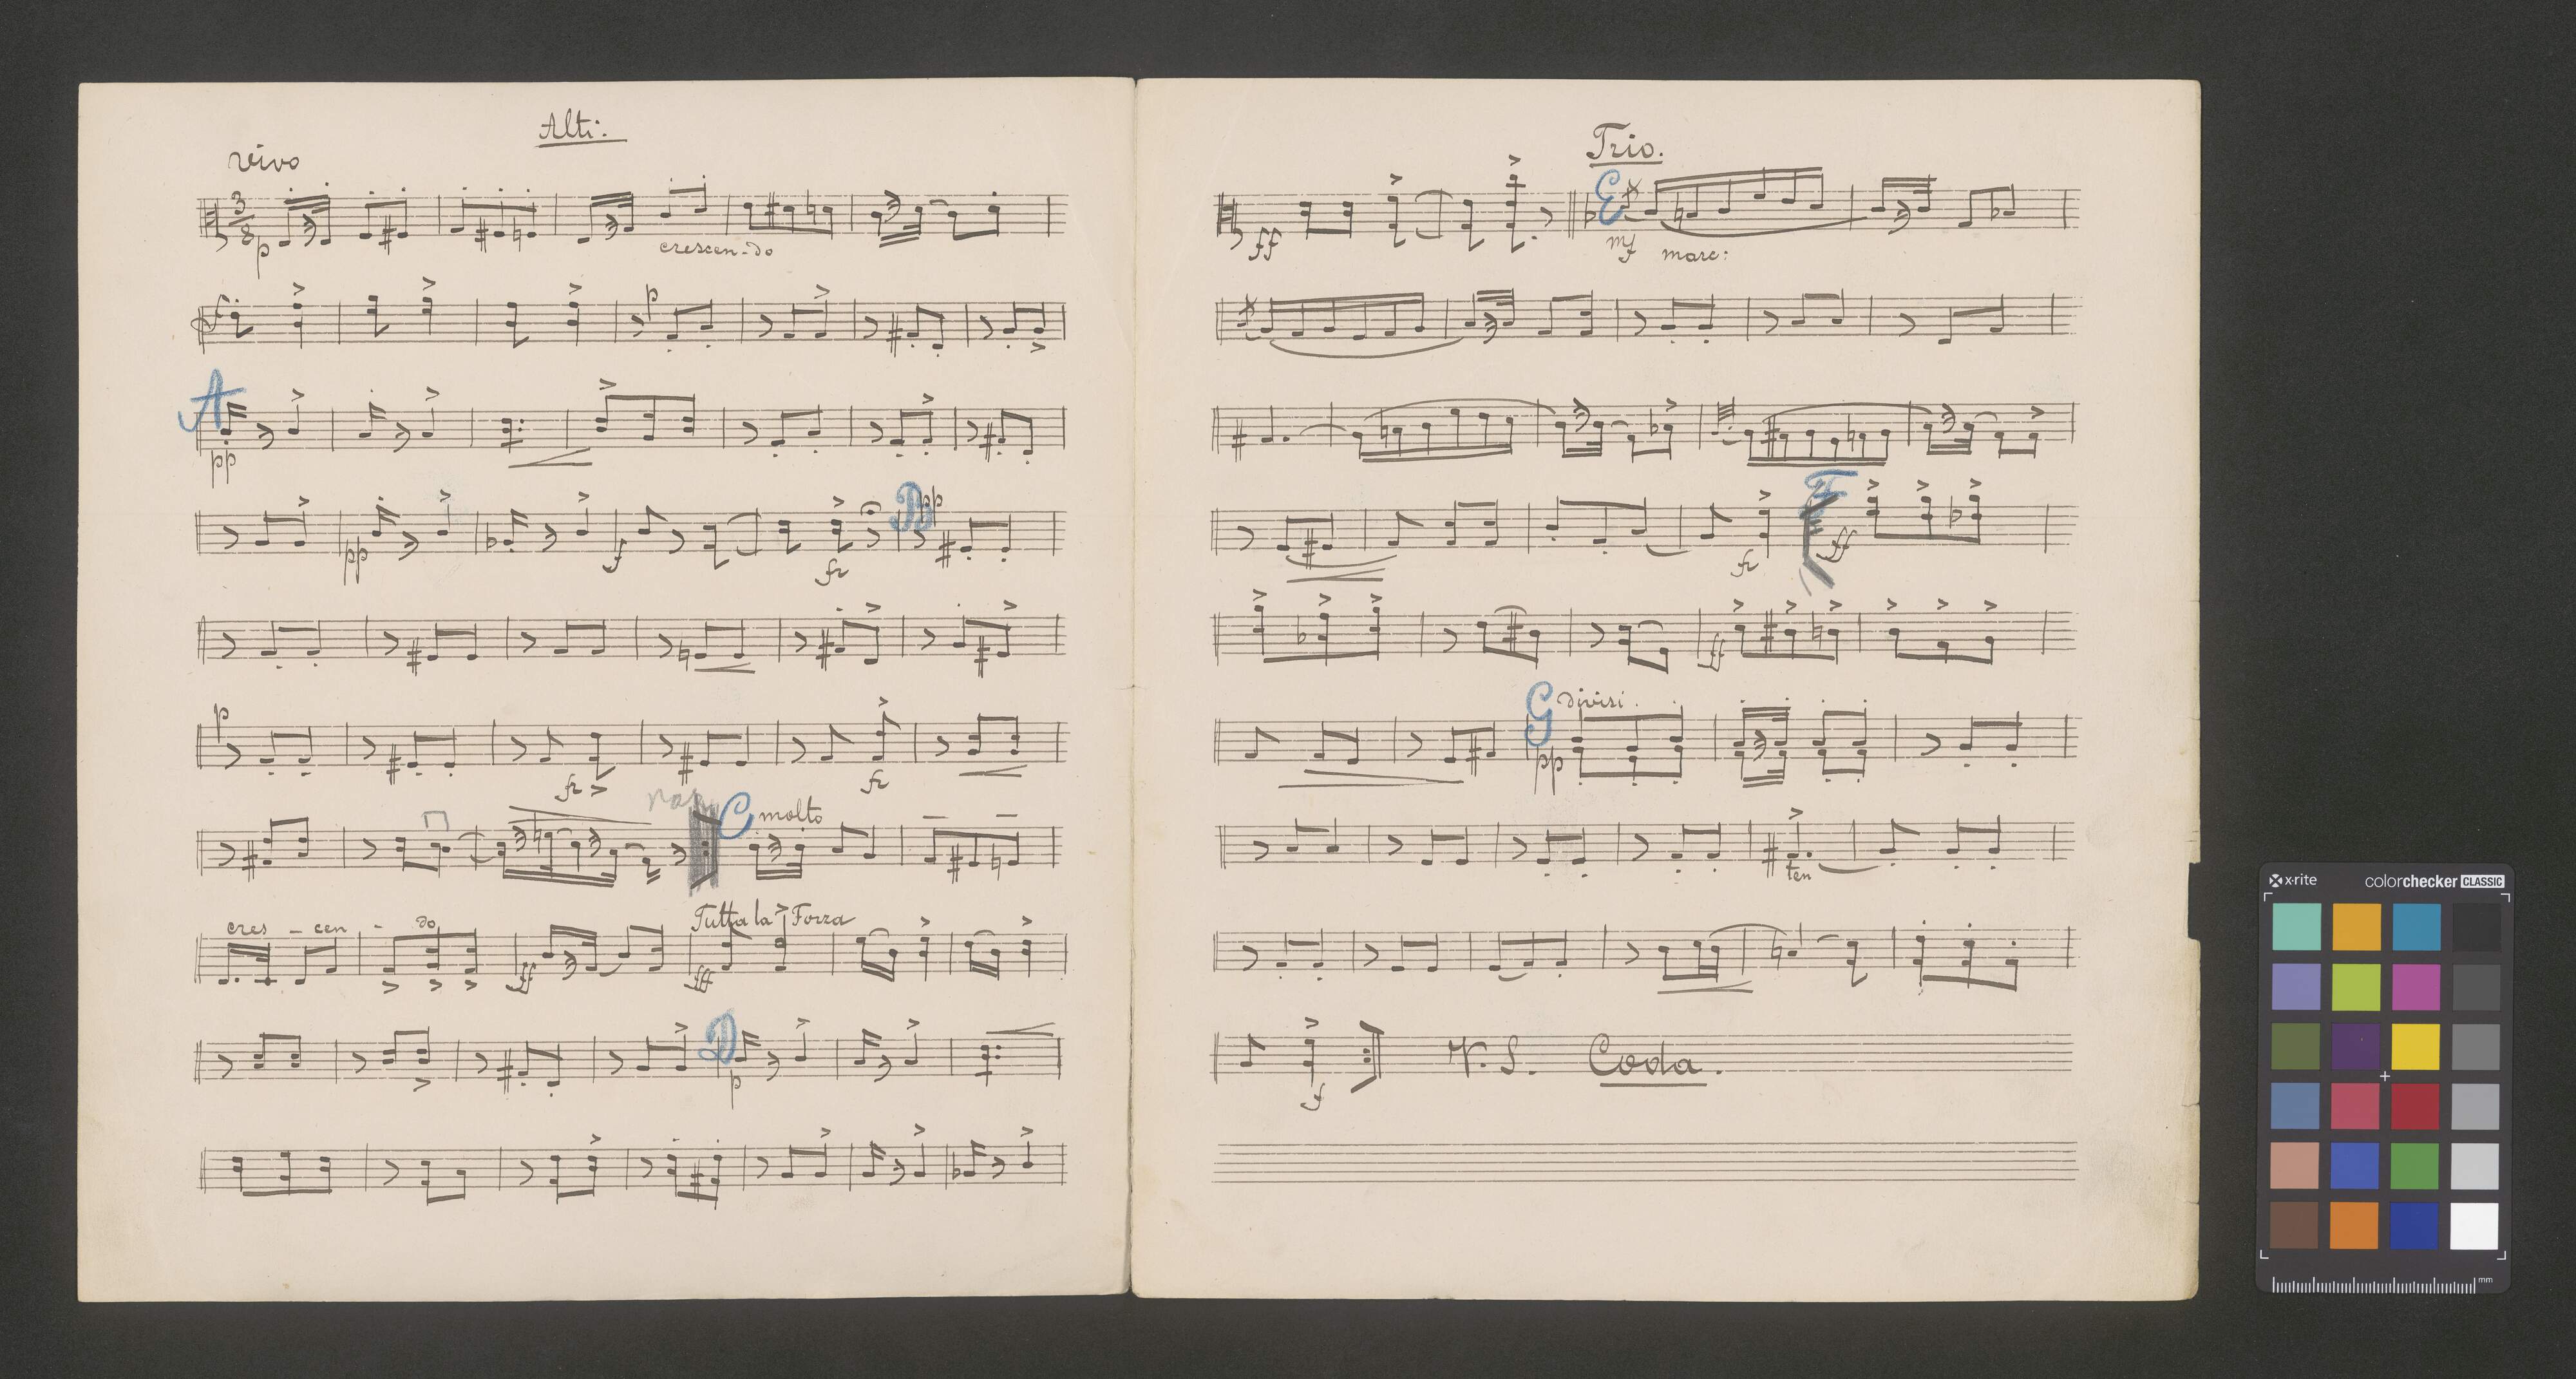 Alti:
vivo
3
8
p
crescen-do
p
A
pp
pp
f
fz
B
pp
p
fz
fz
C molto
cres - cen - do
ff
Tutta la Forza
fff
D
p
ff
Trio.
E
mf marc:
fz
F
ff
ff
G divisi.
pp
ten
f
Coda.
x-rite colorchecker CLASSIC
mm